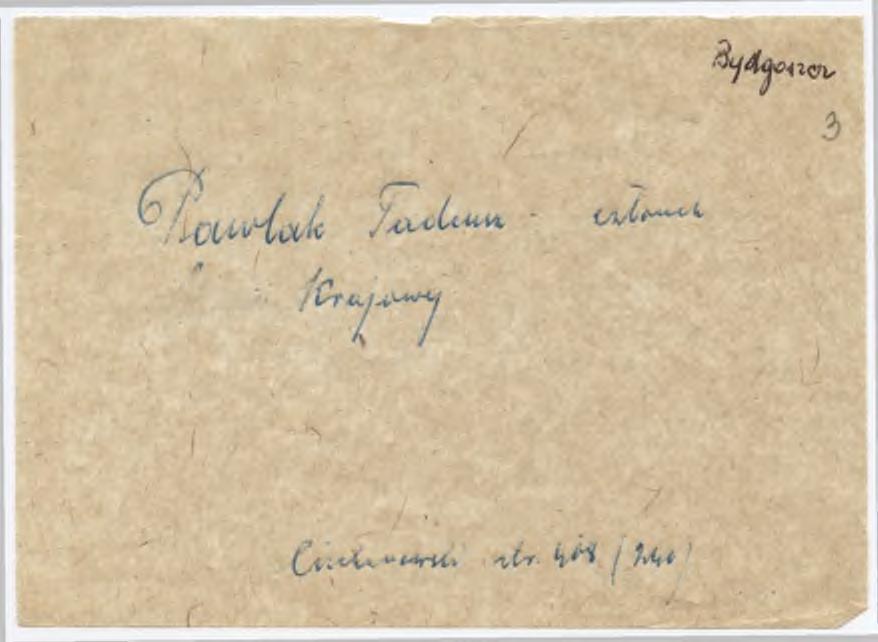 Bydgoszcz
3
Pawlak Tadeusz - członek
Krajowy
Ciechanowski str. 408 (240)